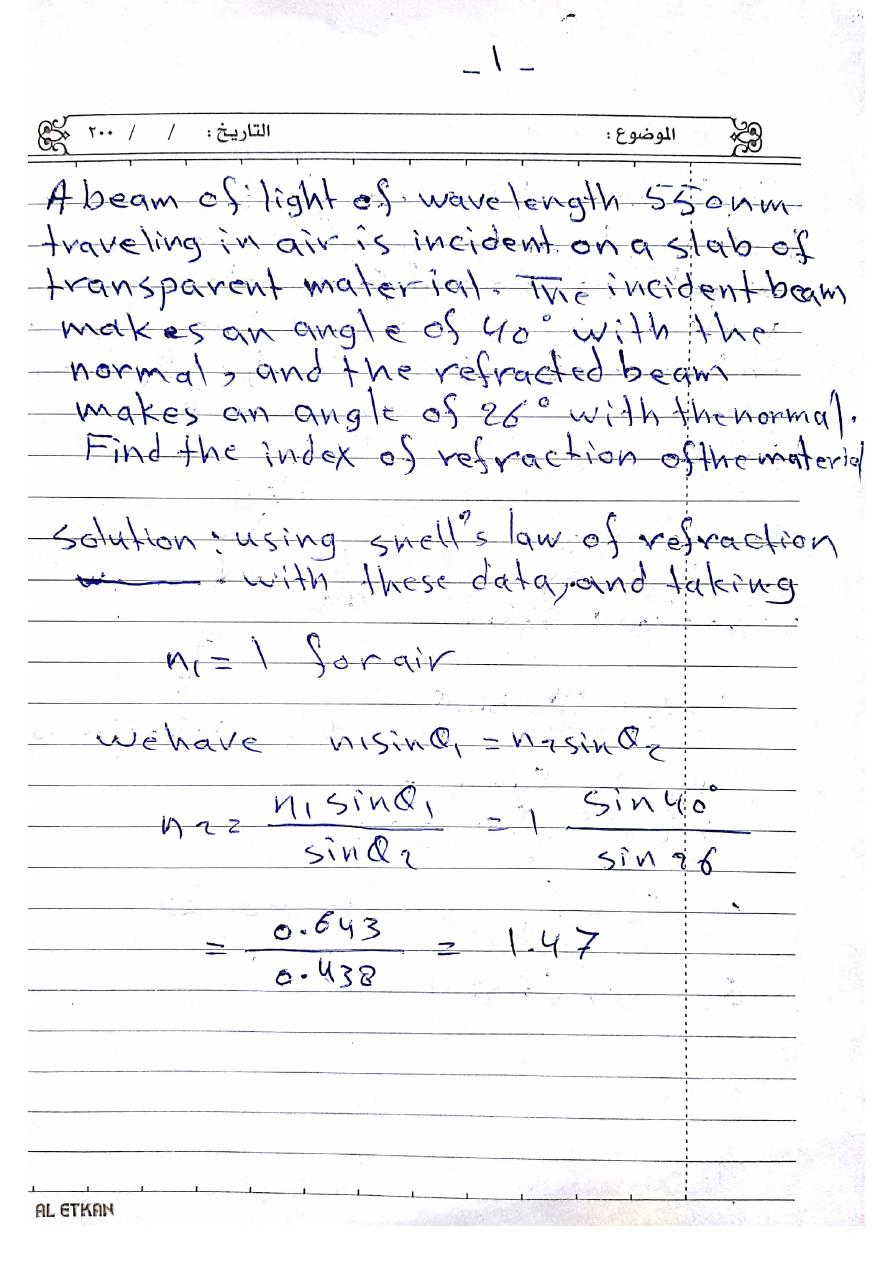 - ١ -
الموضوع : التاريخ : / / ٢٠٠
A beam of light of wavelength 550nm
traveling in air is incident on a slab of
transparent material. The incident beam
makes an angle of 40° with the
normal, and the refracted beam
makes an angle of 26° with the normal.
Find the index of refraction of the material
Solution : using snell's law of refraction
with these data, and taking
n₁ = 1 for air
we have n₁sinθ₁ = n₂sinθ₂
n₂ = n₁ sinθ₁ / sinθ₂ = 1 sin 40° / sin 26
= 0.643 / 0.438 = 1.47
AL ETKAN